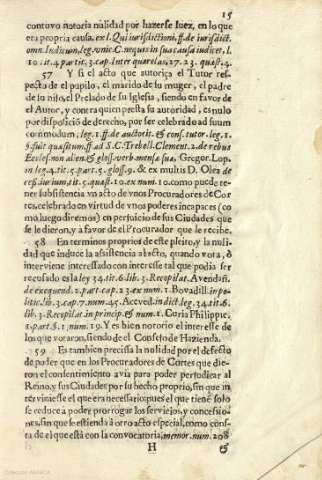 15
contuvo notoria nulidad por hazerse Iuez, en lo que
era propria causa. ex l. Qui iurisdictioni. ff. de iurisdict.
omn. Iudicum, leg. vnic. C. nequis in sua causa iudicet, l.
10. tit. 4. part. 3. cap. Inter quarelas. 27. 23. quæst. 4.
57 Y si el acto que autoriça el Tutor res-
pecto de el pupilo, el marido de su muger, el padre
de su hijo, el Prelado de su Iglesia, siendo en favor de
el Autor, y contra quien presta su autoridad, es nulo
por disposiciõ de derecho, por ser celebrado ad suum
commodum, leg. 1. ff. de auctorit. & cons. tutor. leg. 1.
§. fuit quæsitum. ff. ad S. C. Trebell. Clement. 2. de rebus
Eccles. non alien. & gloss. verb. mensæ suæ, Gregor. Lop.
in leg. 4. tit. 5. part. 5. gloss. 9. & ex multis D. Olea de
cess. iur. ium. tit. 5. quæst. 10. ex num. 10. como puede te-
ner subsistencia vn acto de vnos Procuradores de Cor-
tes, celebrado en virtud de vnos poderes incapaces (co
mo luego diremos) en perjuicio de sus Ciudades que
se le dieron, y à favor de el Procurador que le recibe.
58 En terminos proprios de este pleito, y la nuli-
dad que induce la assistencia al acto, quando vota, ò
interviene interessado con interesse tal que podia ser
recusado es la ley 34. tit. 6. lib. 3. Recopilat. Avendañ.
de exequend. 2. part. cap. 23. ex num. 1. Bovadill. in po-
litic. lib. 3. cap. 7. num. 45. Aceved. in dict. leg. 34. tit. 6.
lib. 3. Recopilat. in princip. & num. 1. Curia Philippic.
1. part. §. 1. num. 19. Y es bien notorio el interesse de
los que votaron, siendo de el Consejo de Hazienda.
59 Es tambien precissa la nulidad por el defecto
de poder que en los Procuradores de Cortes que die-
ron el consentimiento avia para poder perjudicar al
Reino, y sus Ciudades por su hecho proprio, sin que in
terviniesse el que era necessario: pues el que tienẽ solo
se reduce à poder prorrogar los servicios, y concessio-
nes, sin que se estienda à otro acto especial, como cons-
ta de el que está con la convocatoria, memor. num. 208
H &